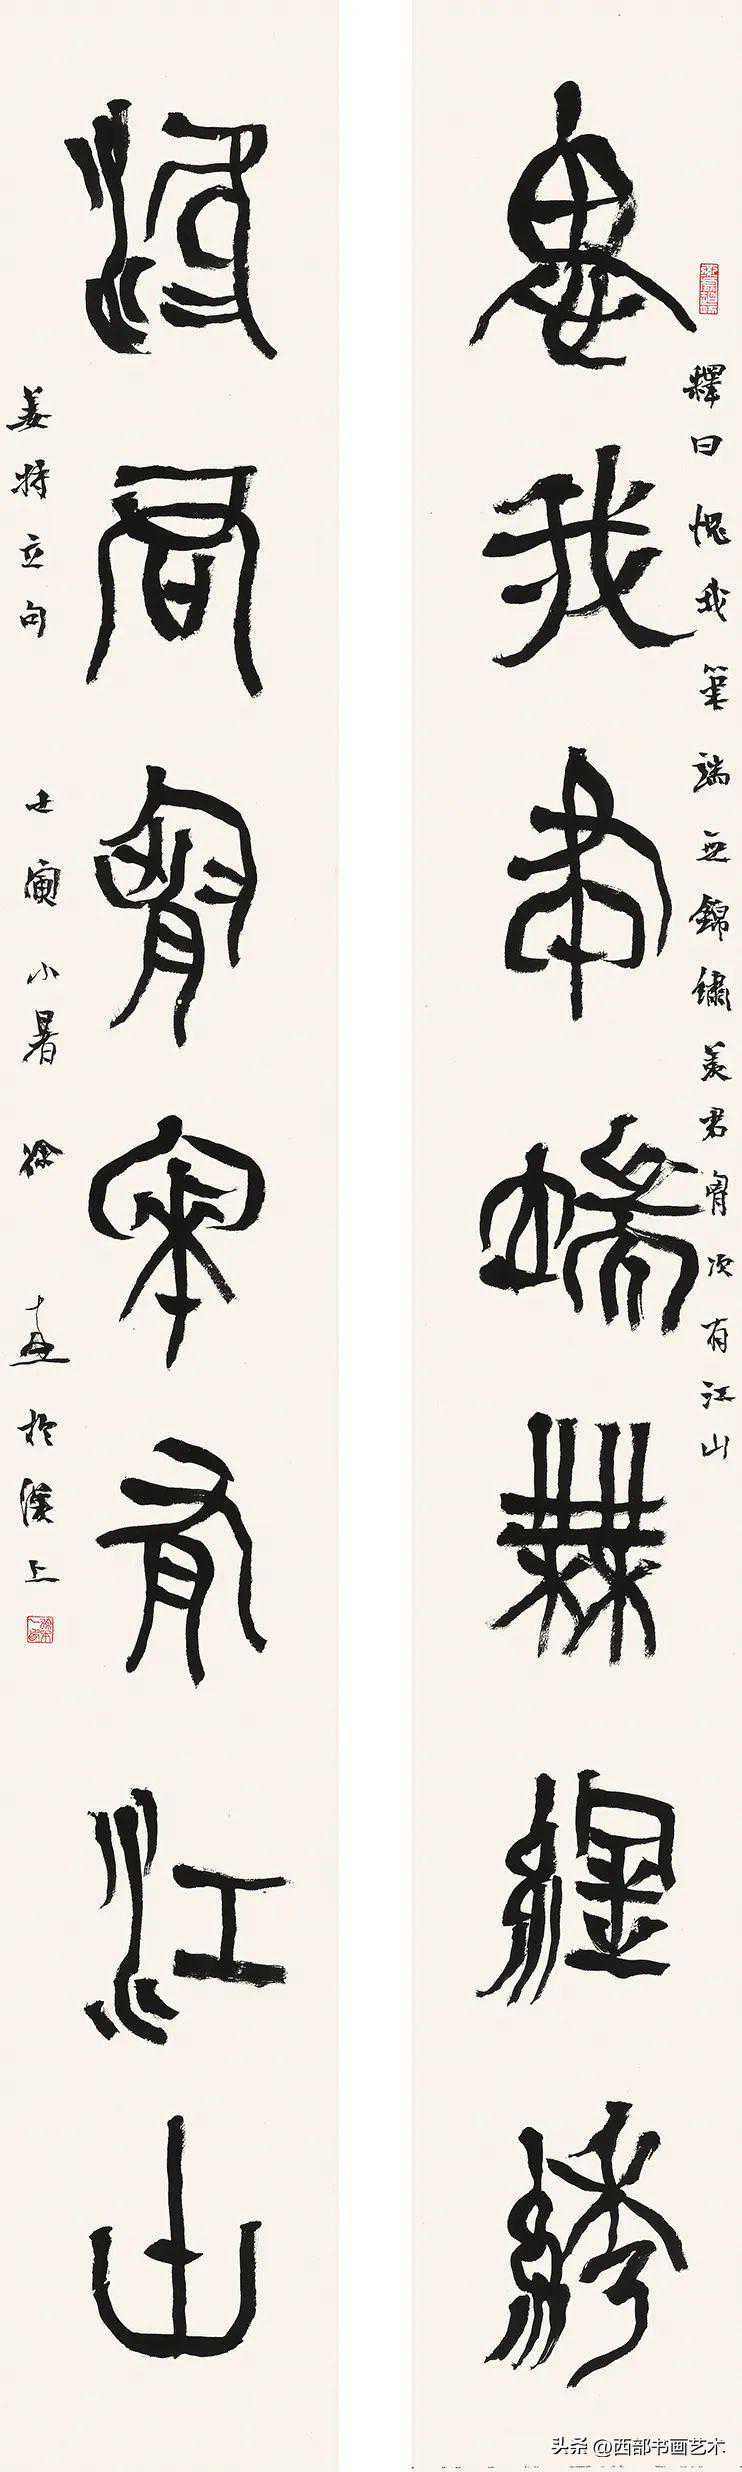 愧我筆端無錦綉
釋曰 愧我筆端無錦繡羨君胷次有江山
羨君胷次有江山
姜特立句 壬寅小暑 徐本一於漢上
头条 @西部书画艺术